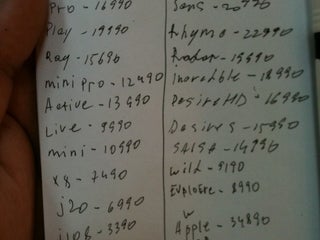 pro - 16990
Play - 19990
Ray - 15690
mini pro - 12490
Active - 13690
Live - 9990
mini - 10990
x8 - 7490
j20 - 6990
j108 - 3390
Sens - 20990
Rhyme - 22990
Radar - 19990
Incredible - 18990
Desire HD - 16990
Desire S - 15990
SALSA - 14990
wild - 9190
Explore - 8990
w
Apple - 34890